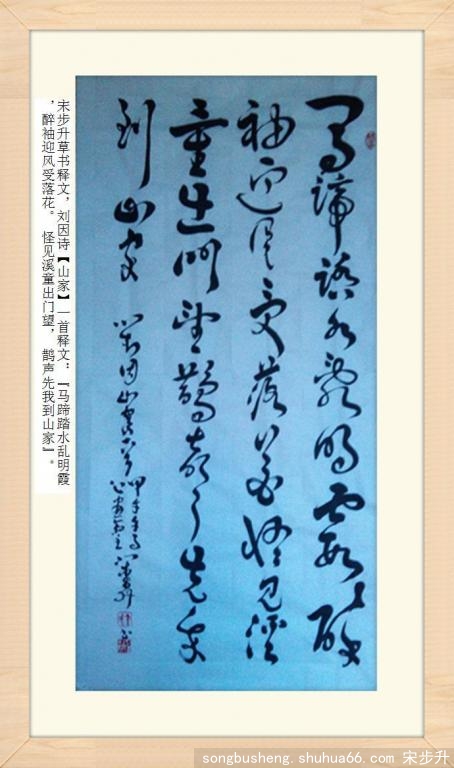 馬蹄踏水亂明霞醉
袖迎風受落花怪見溪
童出門望鵲聲先我
到山家
劉因山家一首
甲午年
宋步升草书释文，刘因诗【山家】一首释文：『马蹄踏水乱明霞
，醉袖迎风受落花。 怪见溪童出门望， 鹊声先我到山家』。
songbusheng. shuhua66. com 宋步升